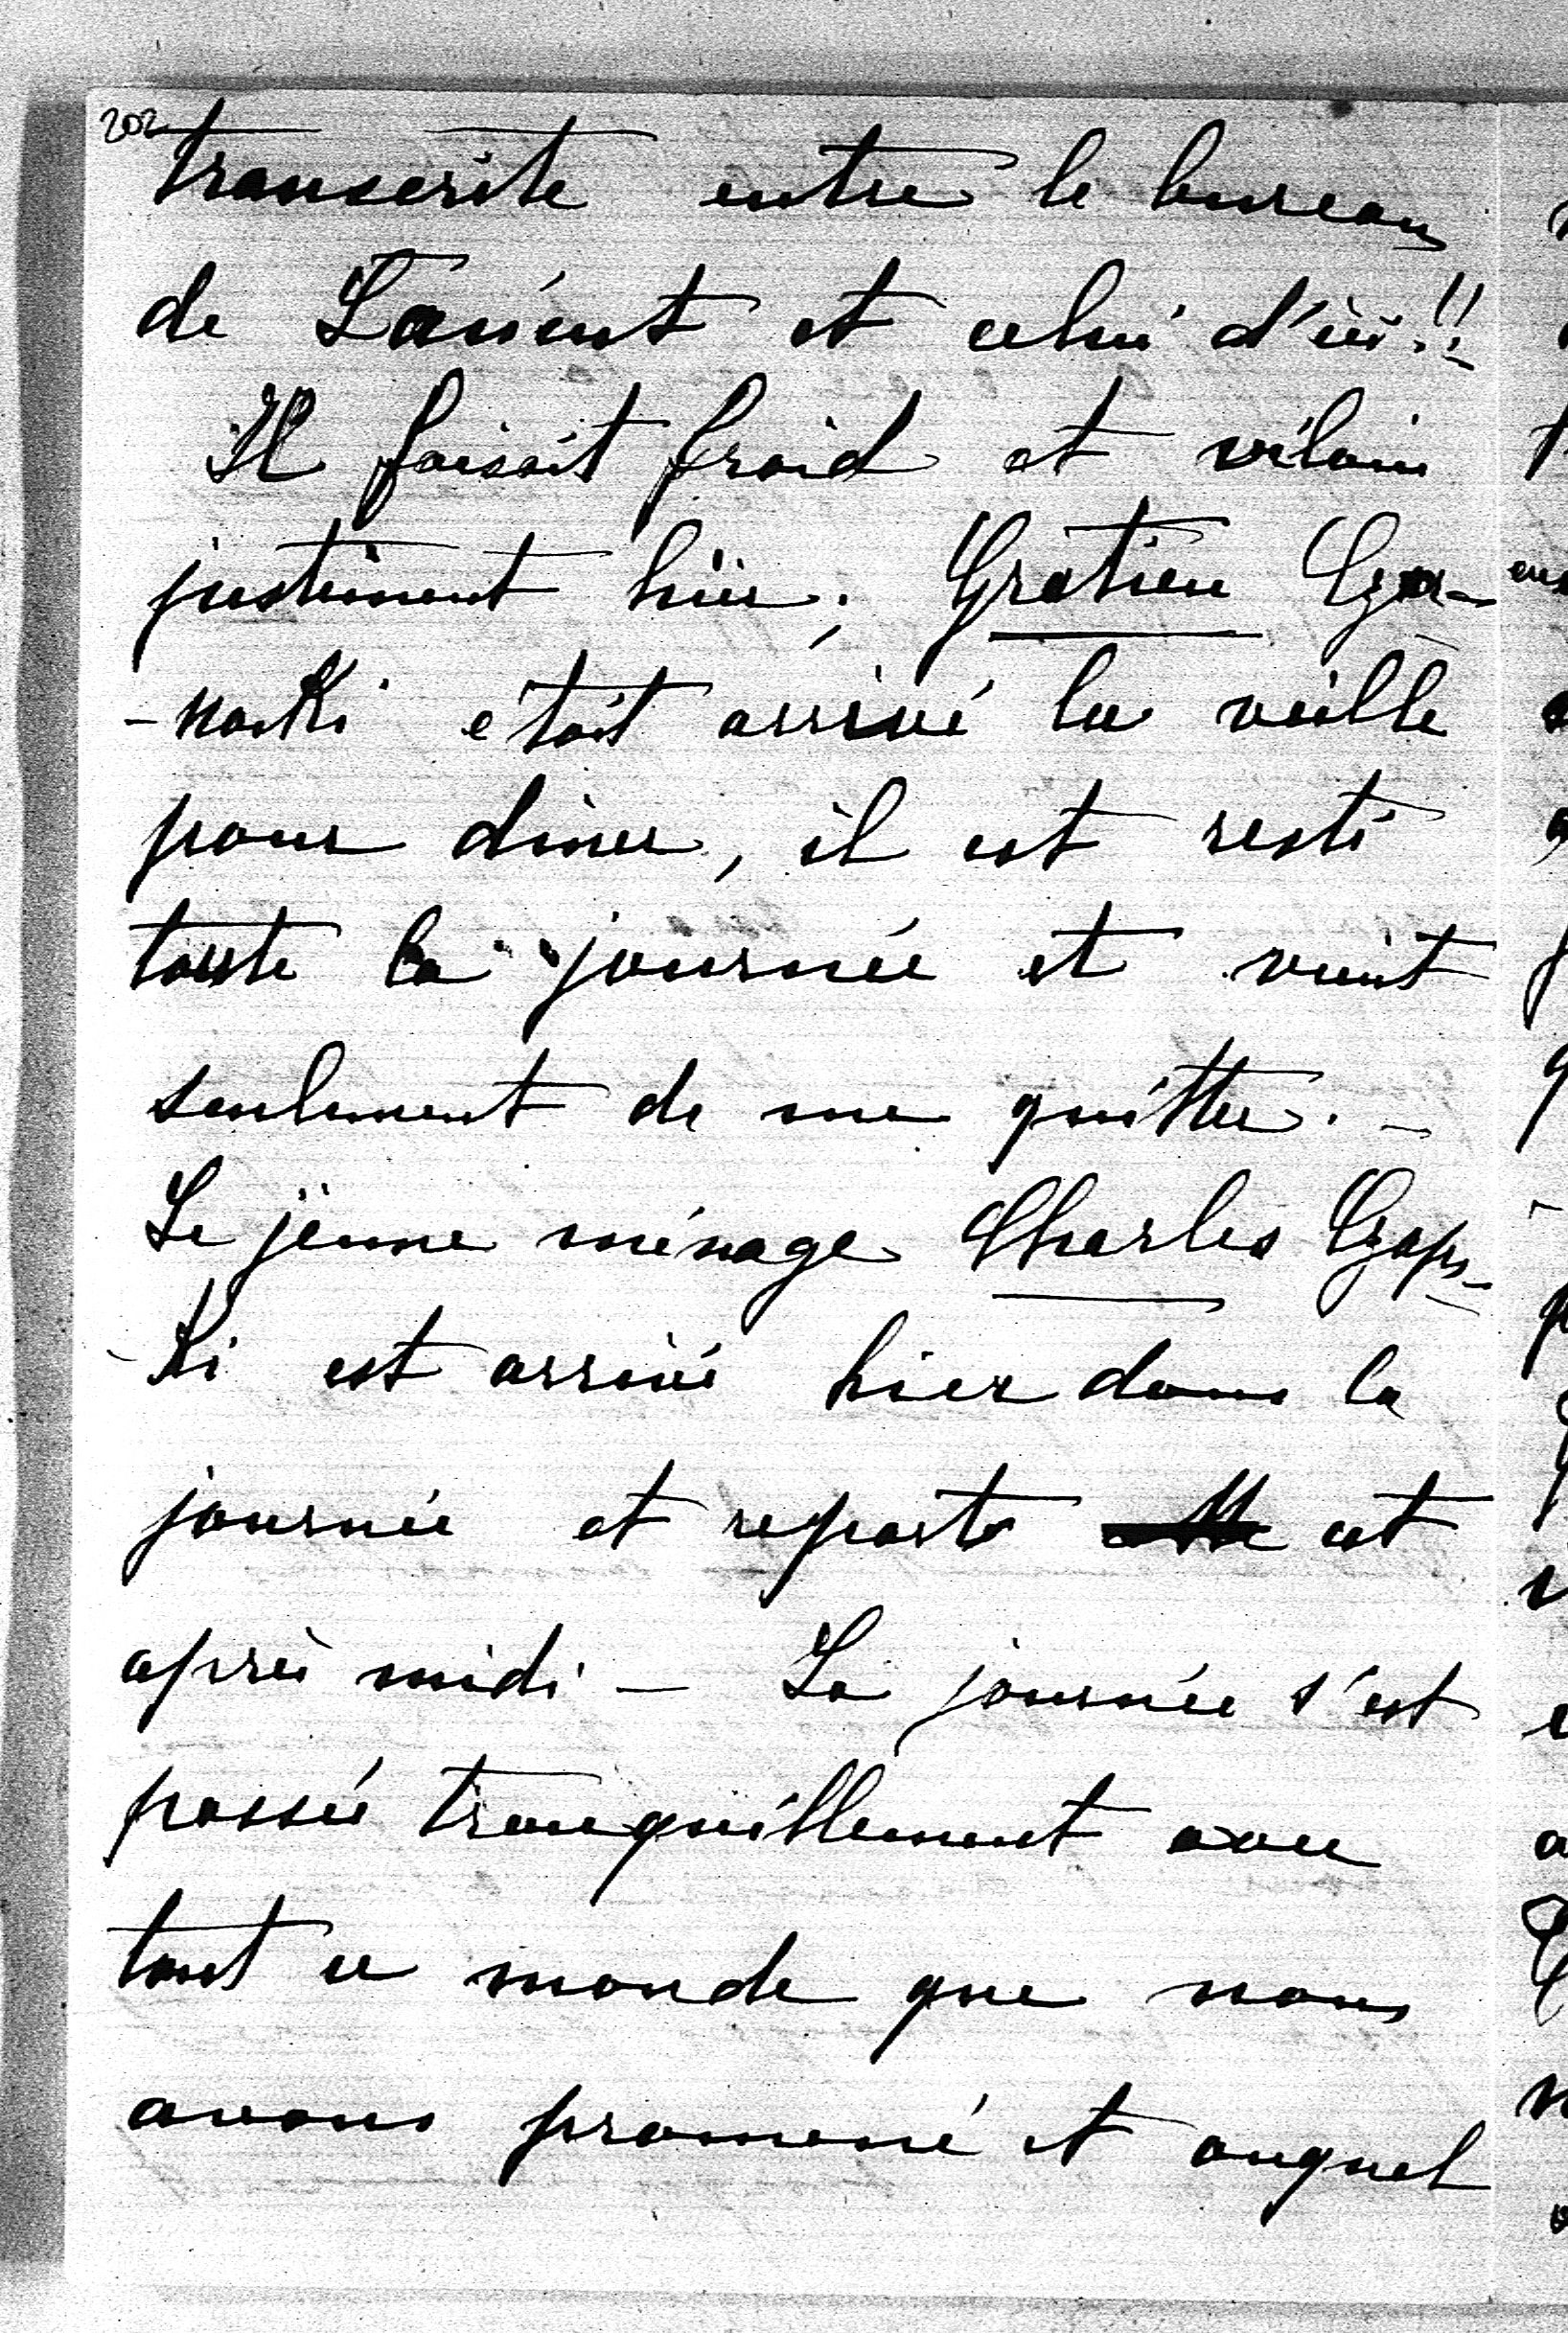 202
transcrite entre le bureau
de Łańcut et celui d'ici!!
Il faisait froid et vilain
justement hier; Gratien Cza-
-noski etait arrivé la veille
pour diner, il est resté
toute la journée et vient
seulement de me quitter. -
Le jeune ménage Charles Czaps-
-Ki est arrivé hier dans la
journée et reparts cet
après midi - La journée s'est
passée tranquillement avec
tout ce monde que nous
avons promené et auquel